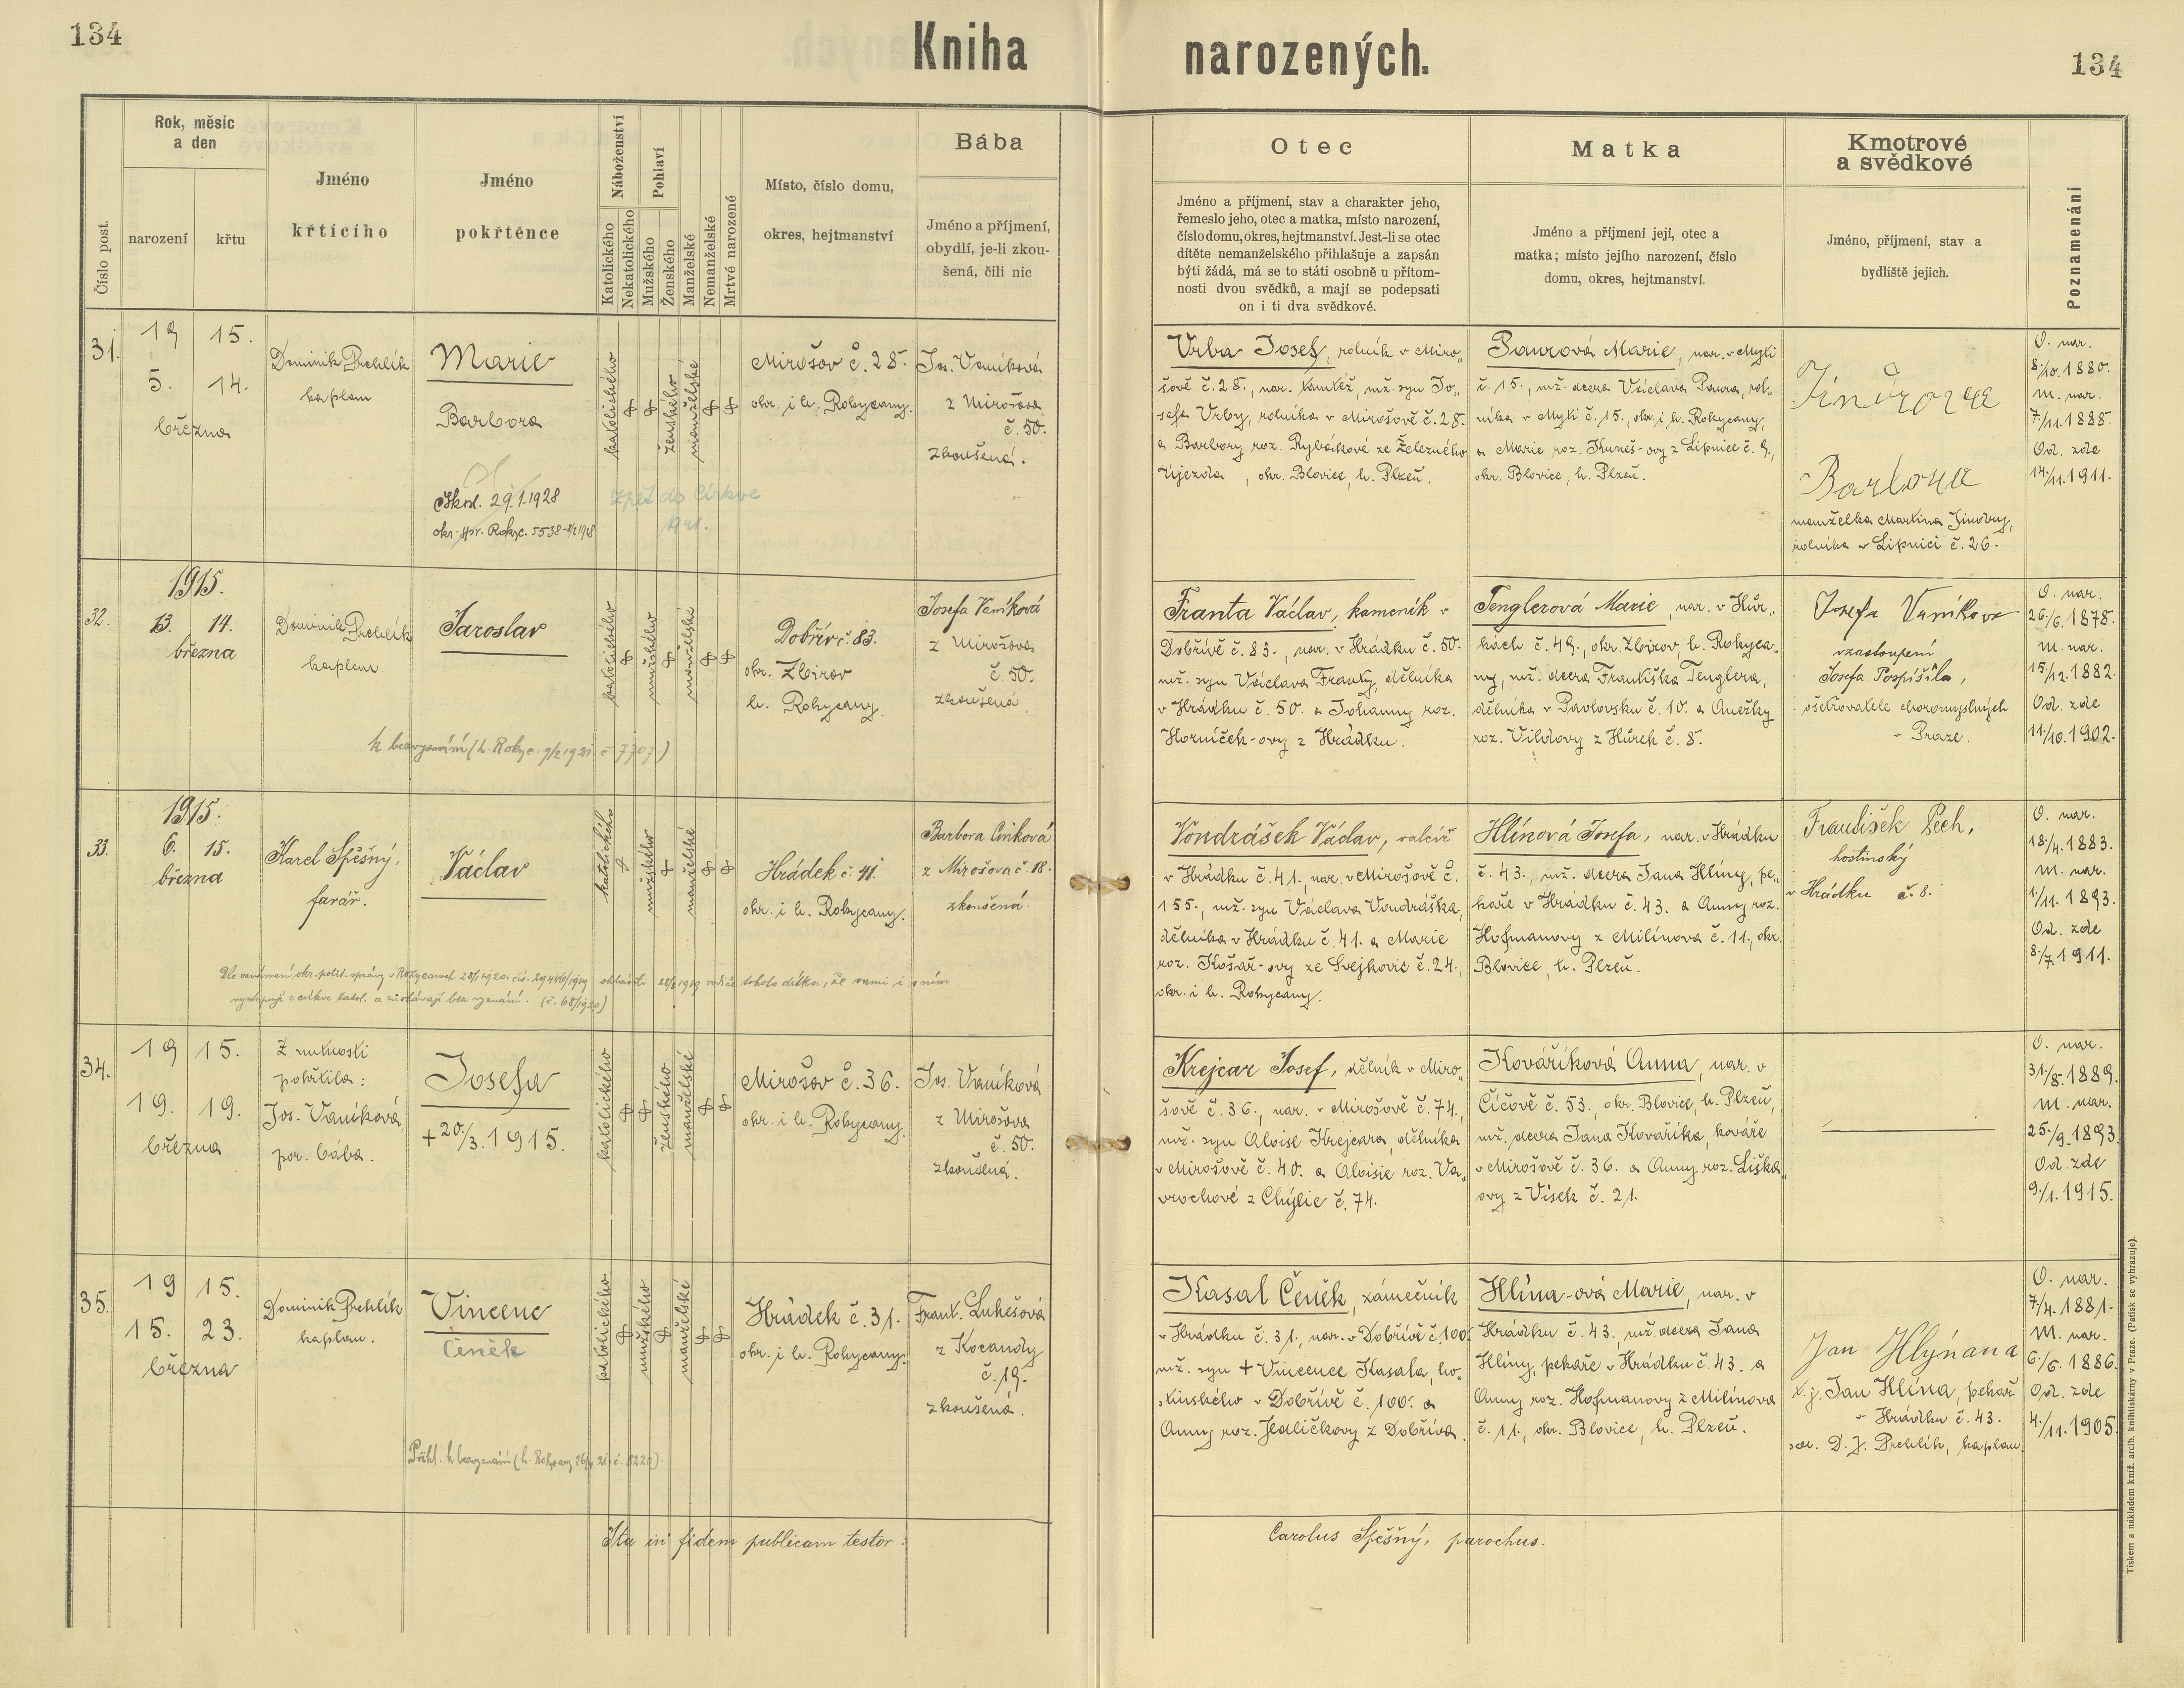 134
Kniha
narozených.
134
Číslo post.
Rok, měsíc
a den
narození
křtu
Jméno
křtícího
Jméno
pokřtěnce
Náboženství
Katolického
Nekatolického
Pohlaví
Mužského
Ženského
Manželské
Nemanželské
Mrtvé narozené
Místo, číslo domu,
okres, hejtmanství
Bába
Jméno a příjmení,
obydlí, je-li zkou-
šená, čili nic
Otec
Jméno a příjmení, stav a charakter jeho,
řemeslo jeho, otec a matka, místo narození,
číslo domu, okres, hejtmanství. Jest-li se otec
dítěte nemanželského přihlašuje a zapsán
býti žádá, má se to státi osobně u přítom-
nosti dvou svědků, a mají se podepsati
on i ti dva svědkové.
Matka
Jméno a příjmení její, otec a
matka; místo jejího narození, číslo
domu, okres, hejtmanství.
Kmotrové
a svědkové
Jméno, příjmení, stav a
bydliště jejich.
Poznamenání
31.
19 15.
5. 14.
března
Dominik Prehlík
kaplan
Marie
Barbora
29.1.1928
zpět do církve
katolického
ženského
manželské
Mirošov č. 28.
okr. i h. Rokycany.
Jos. Vaníková
z Mirošova
č. 50.
zkoušená.
Vrba Josef, rolník v Miro„
šově č. 28., nar. tamtéž, mž. syn Jo„
sefa Vrby, rolníka v Mirošově č. 28.
a Barbory roz. Rybáčkové ze Železného
Újezda, okr. Blovice, h. Plzeň.
Paurová Marie, nar. v Mytí
č. 15., mž. dcera Václava Paura, rol„
níka v Mytí č. 15., okr. i h. Rokycany,
a Marie roz. Kuneš-ovy z Lipnice č. 9.,
okr. Blovice, h. Plzeň.
Barbora
manželka Martina Jindry,
rolníka v Lipnici č. 26.
O. nar.
8./10. 1880.
M. nar.
7./11. 1888.
Od. zde
14./11. 1911.
32.
1915.
13. 14.
března
Dominik Prehlík
kaplan.
Jaroslav
k bezvyznání (h. Rokyc. 9/2 1921 č 7707)
katolického
mužského
manželské
Dobřív č. 83.
okr. Zbirov
h. Rokycany.
Josefa Vaníková
z Mirošova
č. 50.
zkoušená.
Franta Václav, kameník v
Dobřívě č. 83., nar. v Hrádku č. 50.
mž. syn Václava Franty, dělníka
v Hrádku č. 50. a Johanny roz.
Horníček-ovy z Hrádku.
Tenglerová Marie, nar. v Hůr„
kách č. 49., okr. Zbirov, h. Rokyca„
ny, mž. dcera Františka Tenglera,
dělníka v Pavlovsku č. 10. a Anežky
roz. Vildovy z Hůrek č. 8.
Josefa Vaníková
v zastoupení
Josefa Pospíšila,
ošetřovatele choromyslných
v Praze.
O. nar.
26./6. 1878.
M. nar.
15./12. 1882.
Od. zde
11./10. 1902.
33.
1915.
6. 15.
března
Karel Spěšný,
farář.
Václav
katolického
mužského
manželské
Hrádek č. 41.
okr. i h. Rokycany.
Barbora Cinková
z Mirošova č. 18.
zkoušená.
Dle oznámení okr. polit. správy v Rokycanech 28/1 1920. čís. 29446/1919 ohlásili 28/8 1919 rodiče tohoto dítka, že sami i s ním
vystupují z církve katol. a zůstávají bez vyznání. (č. 68/1920)
Vondrášek Václav, valcíř
v Hrádku č. 41., nar. v Mirošově č.
155., mž. syn Václava Vondráška,
dělníka v Hrádku č. 41. a Marie
roz. Košař-ovy ze Svejkovic č. 24.,
okr. i h. Rokycany.
Hlínová Josefa, nar. v Hrádku
č. 43., mž. dcera Jana Hlíny, pe„
kaře v Hrádku č. 43. a Anny roz.
Hofmanovy z Milínova č. 11., okr.
Blovice, h. Plzeň.
František Pech,
hostinský
v Hrádku č. 8.
O. nar.
18./4. 1883.
M. nar.
1./11. 1893.
Od. zde
8./7. 1911.
34.
19 15.
19. 19.
března
Z nutnosti
pokřtila:
Jos. Vaníková,
por. bába.
Josefa
+ 20./3. 1915.
katolického
ženského
manželské
Mirošov č. 36.
okr. i h. Rokycany.
Jos. Vaníková
z Mirošova
č. 50.
zkoušená.
Krejcar Josef, dělník v Miro„
šově č. 36., nar. v Mirošově č. 74.,
mž. syn Aloise Krejcara, dělníka
v Mirošově č. 40. a Aloisie roz. Va„
vrochové z Chýlic č. 74.
Kováříková Anna, nar. v
Číčově č. 53. okr. Blovice, h. Plzeň,
mž. dcera Jana Kovaříka, kováře
v Mirošově č. 36. a Anny roz. Liška„
ovy z Vísek č. 21.
O. nar.
31./8. 1889.
M. nar.
25./9. 1893.
Od. zde
9./1. 1915.
35.
19 15.
15. 23.
března
Dominik Prehlík
kaplan.
Vincenc
Čeněk
katolického
mužského
manželské
Hrádek č. 31.
okr. i h. Rokycany.
Frant. Lukešová
z Kocandy
č. 19.
zkoušená.
Kasal Čeněk, zámečník
v Hrádku č. 31., nar. v Dobřívě č. 100.
mž. syn + Vincence Kasala, ho„
stinského v Dobřívě č. 100. a
Anny roz. Jedličkovy z Dobříva.
Hlína-ová Marie, nar. v
Hrádku č. 43. mž. dcera Jana
Hlíny, pekaře v Hrádku č. 43. a
Anny roz. Hofmanovy z Milínova
č. 11., okr. Blovice, h. Plzeň.
Jan Hlýnana
t. j. Jan Hlína, pekař
v Hrádku č. 43.
D. J. Prehlík, kaplan
O. nar.
7./4. 1881.
M. nar.
6./6. 1886.
Od. zde
4./11. 1905.
Ita in fidem publicam testor:
Carolus Spěšný, parochus.
Tiskem a nákladem kníž. arcib. knihtiskárny v Praze. (Patisk se vyhrazuje).